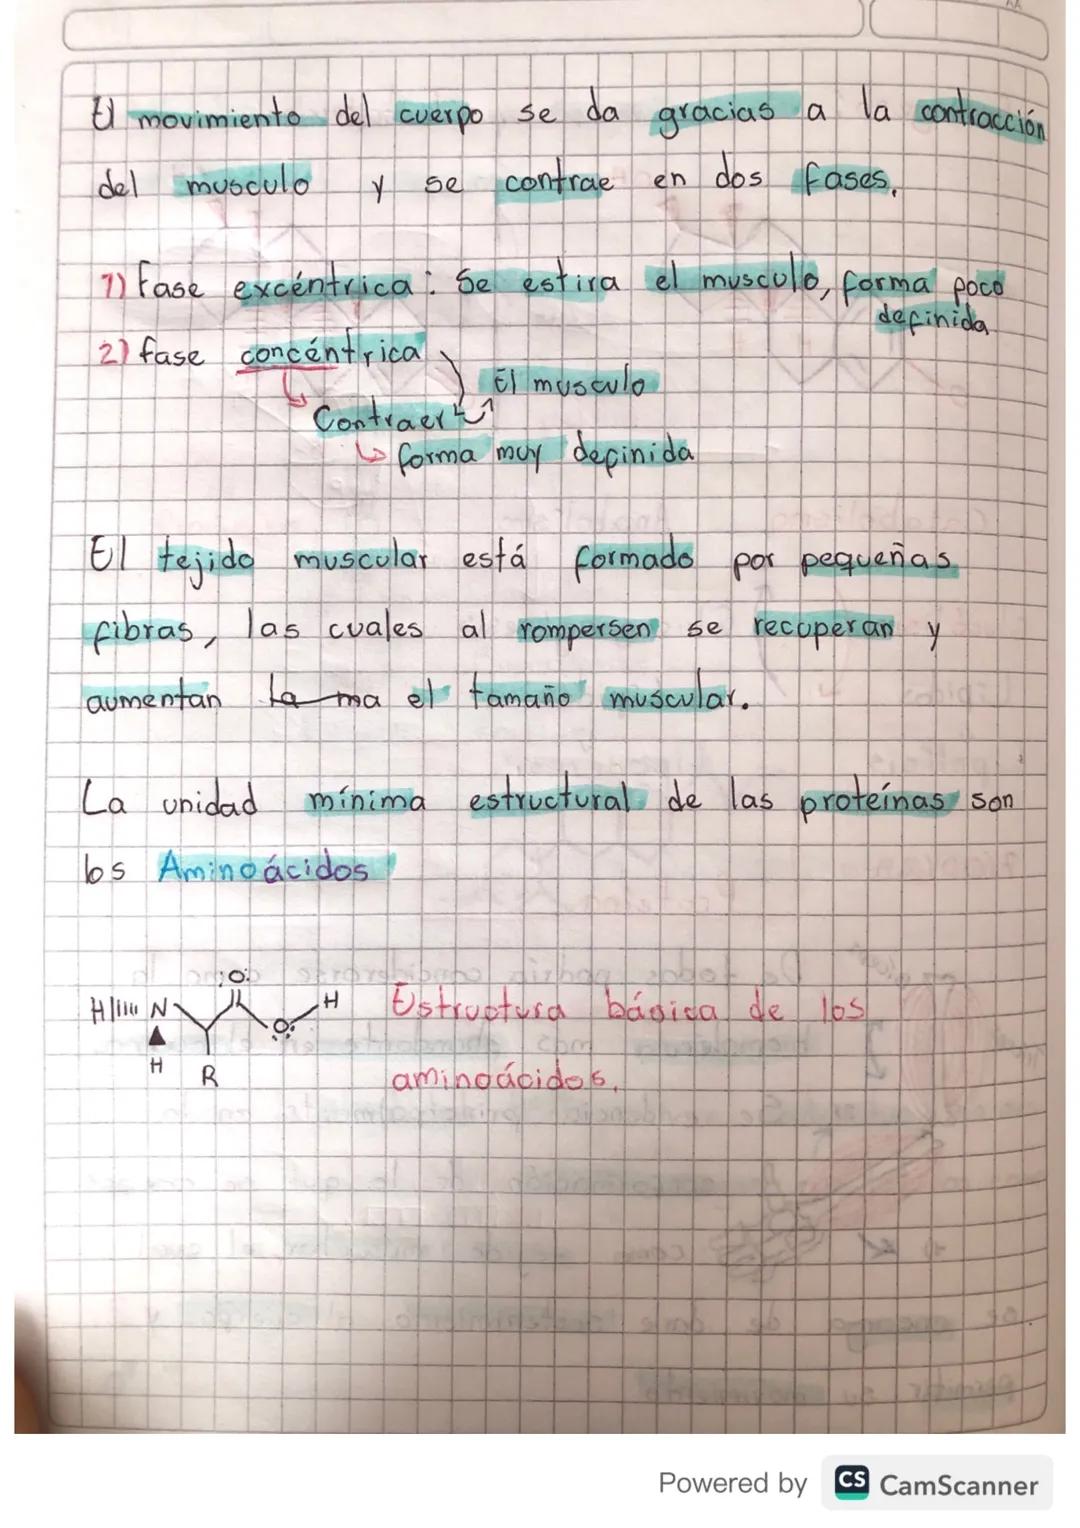 El movimiento del cuerpo se da gracias a la contracción
del musculo y se contrae en dos fases.
1) Fase excéntrica: Se estira el musculo, forma poco
definida
2) fase concéntrica
El musculo
Contraer
forma muy definida
El tejido muscular está formado por pequeñas
fibras, las cuales al rompersen se recuperan y
aumentan la ma el tamaño muscular.
La unidad mínima estructural de las proteínas son
los Aminoácidos
:O:
H N O H
H R
Estructura básica de los
aminoácidos.
Powered by CS CamScanner